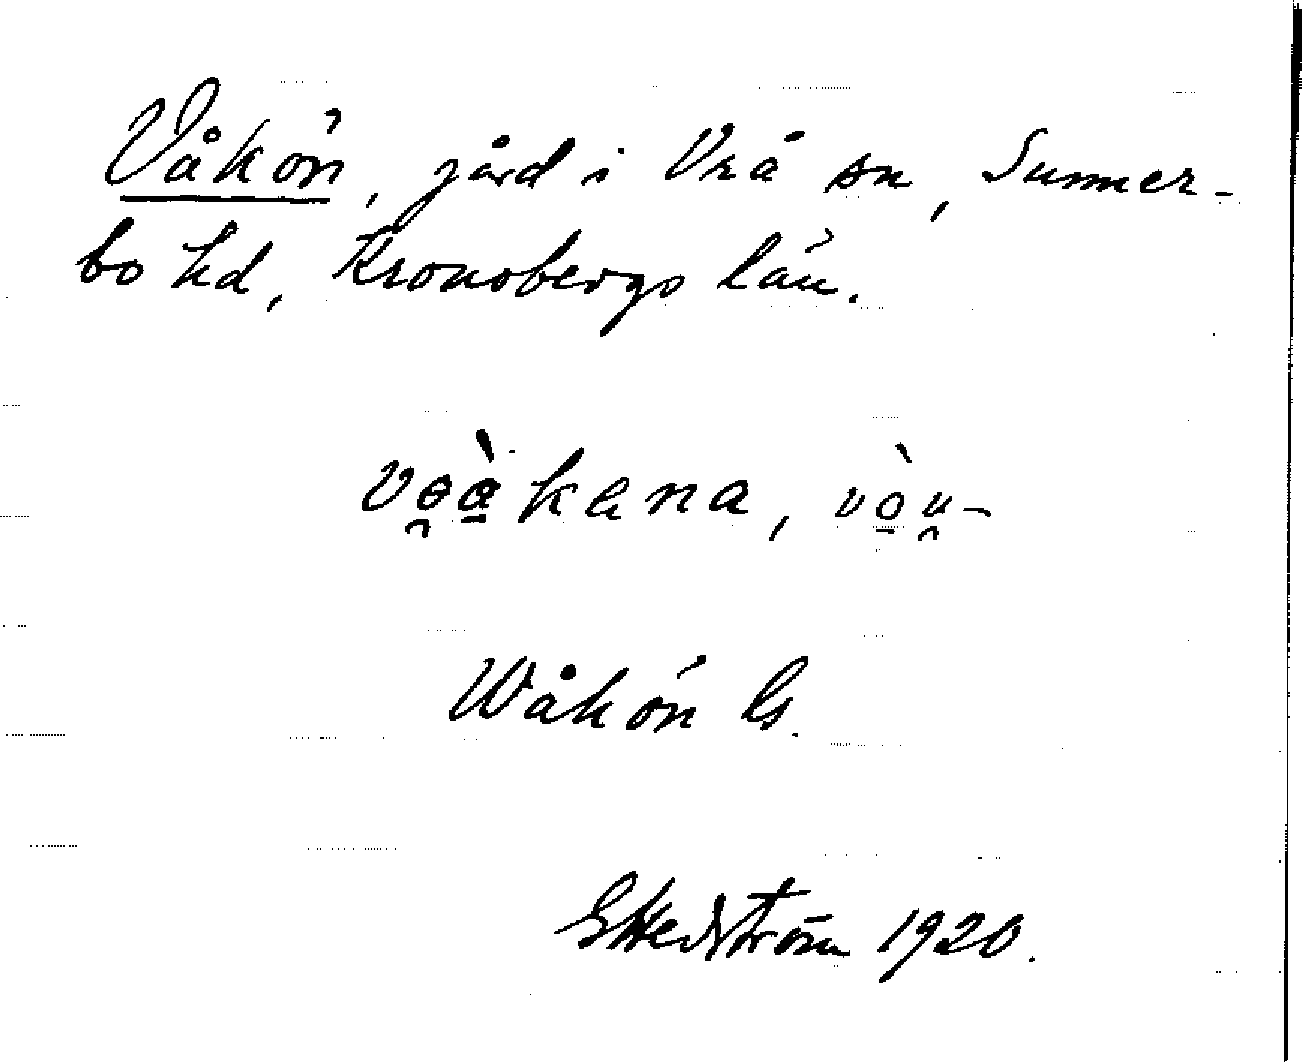 Våkön, gård i Vrå sn, Sunner-
bo hd, Kronobergs län.
vo̯à̠kena, vò̠u̯-
Wåkön G.
G Hedström 1920.